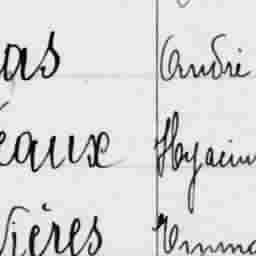 as André
eaux Hyacin
ières Emma